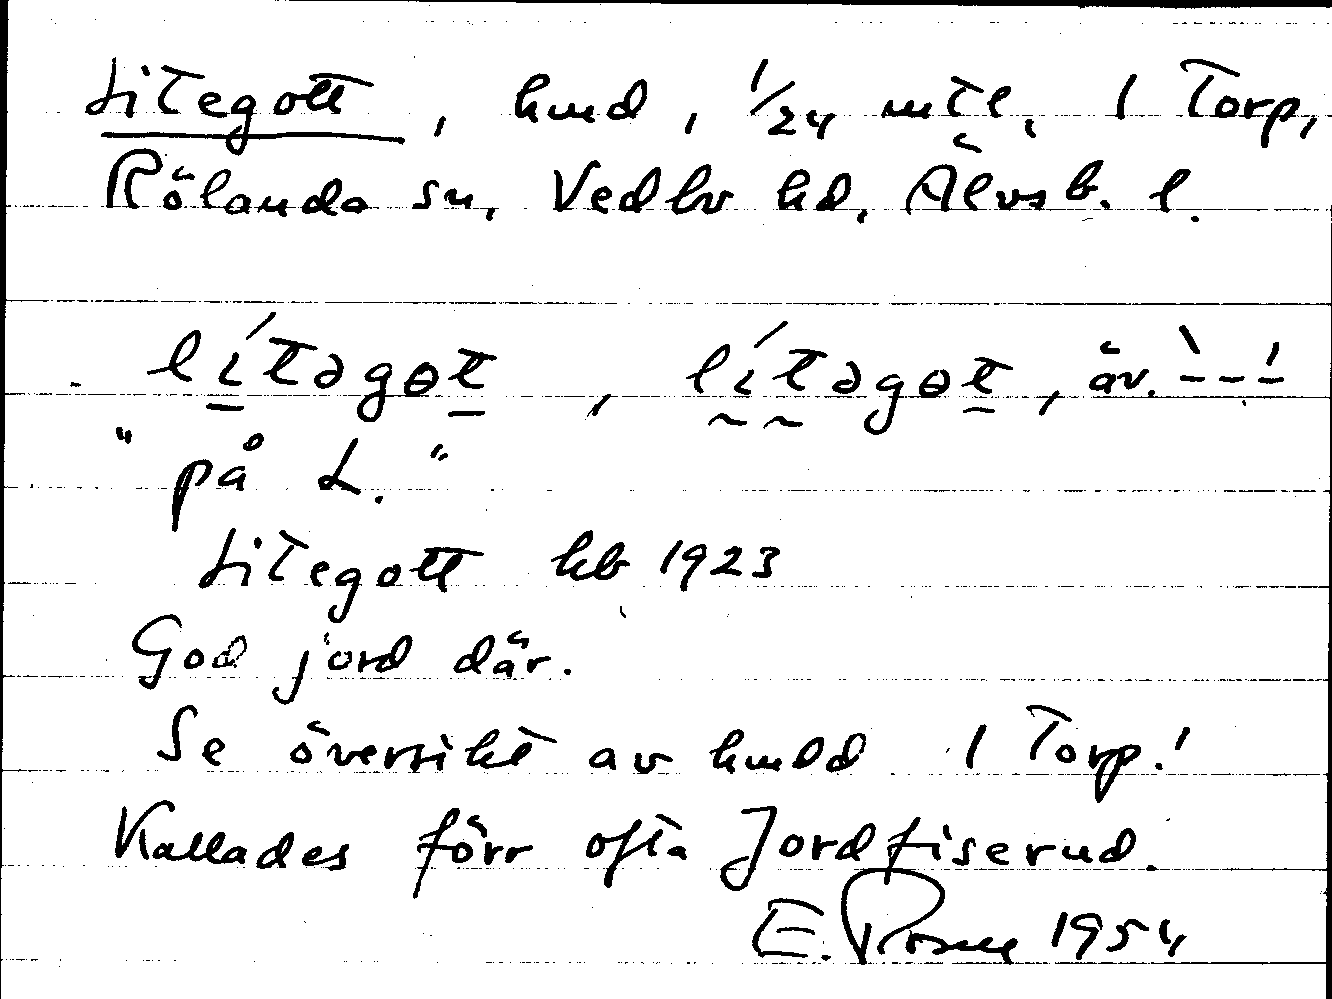 Litegott, hmd, 1/24 mtl, 1 Torp,
Rölanda sn, Vedbo hd, Älvsb. l.
lítəgɵt, lítəgɵt, äv. `--´-
"på L."
Litegott kb 1923
God jord där.
Se översikt av hmdd 1 Torp!
Kallades förr ofta Jordfiserud.
E. 1954